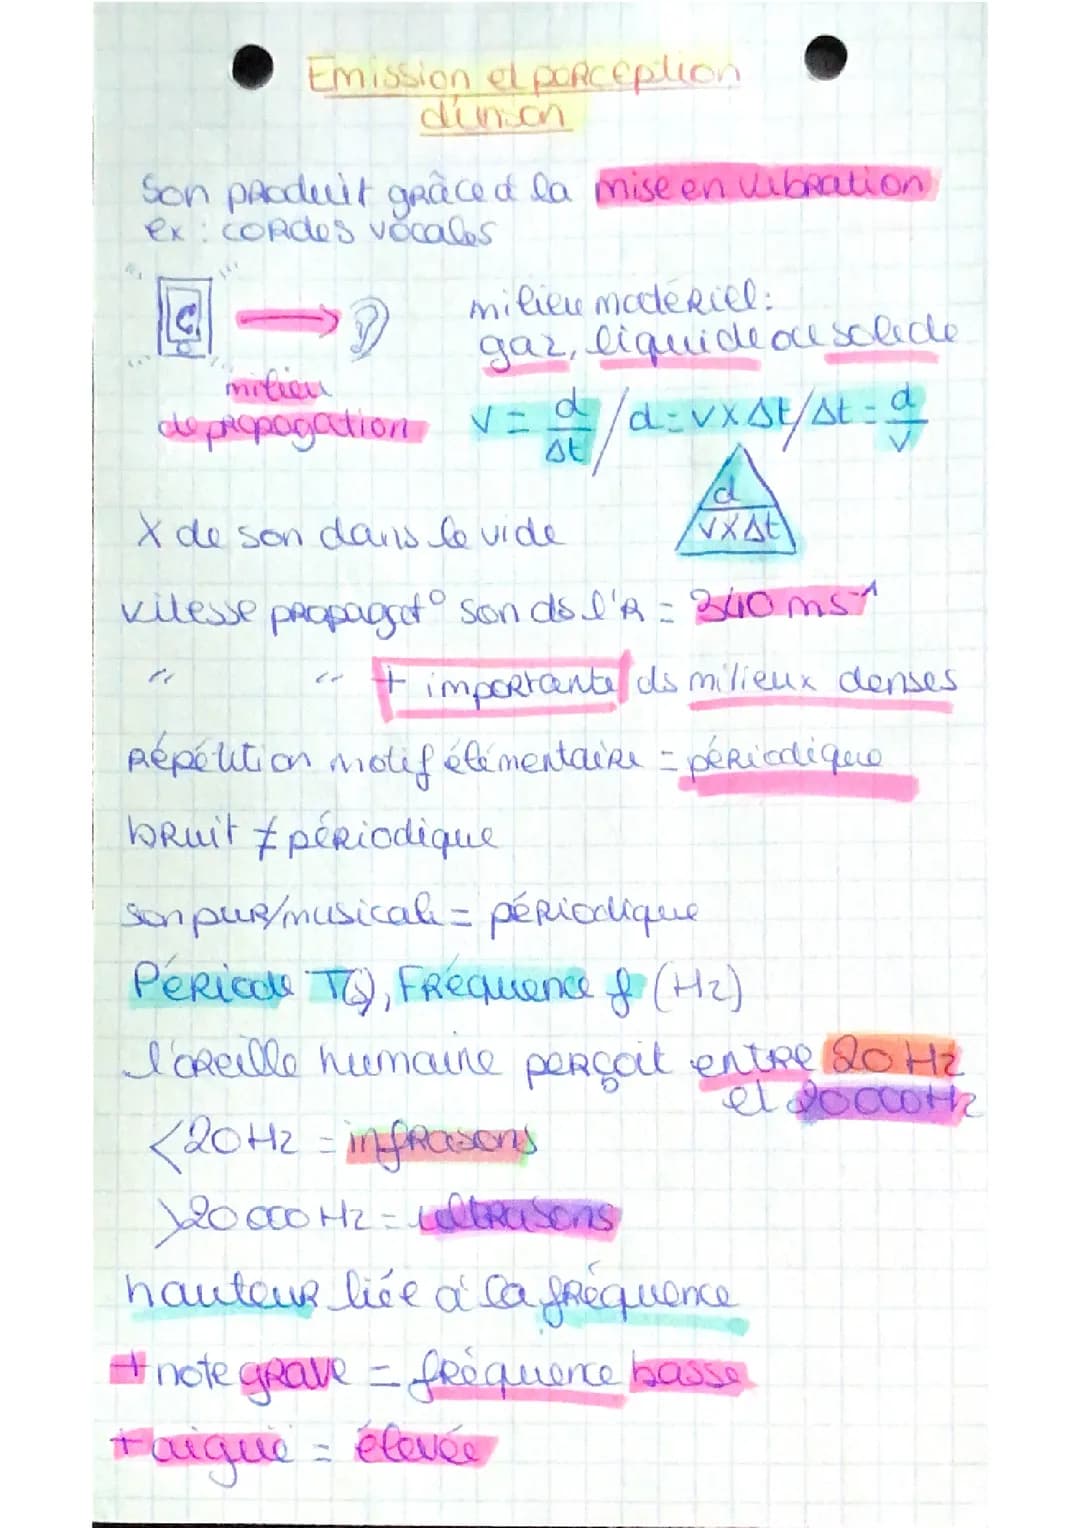 Emission et perception
d'un son
Son produit grâce à la mise en vibration
ex : cordes vocales
milieu matériel :
gaz, liquide ou solide
milieu
de propagation
V = d/Δt / d = V x Δt / Δt = d/V
d
V x Δt
X de son dans le vide
vitesse propagat° son ds l'R = 340 ms-1
" " + importante ds milieux denses
Répétition motif élémentaire = périodique
bruit ≠ périodique
son pur/musical = périodique
Période T(s), Fréquence f (Hz)
l'oreille humaine perçoit entre 20 Hz
et 20000Hz
<20Hz = infrasons
>20 000 Hz = ultrasons
hauteur liée à la fréquence
+ note grave = fréquence basse
+ aiguë = élevée